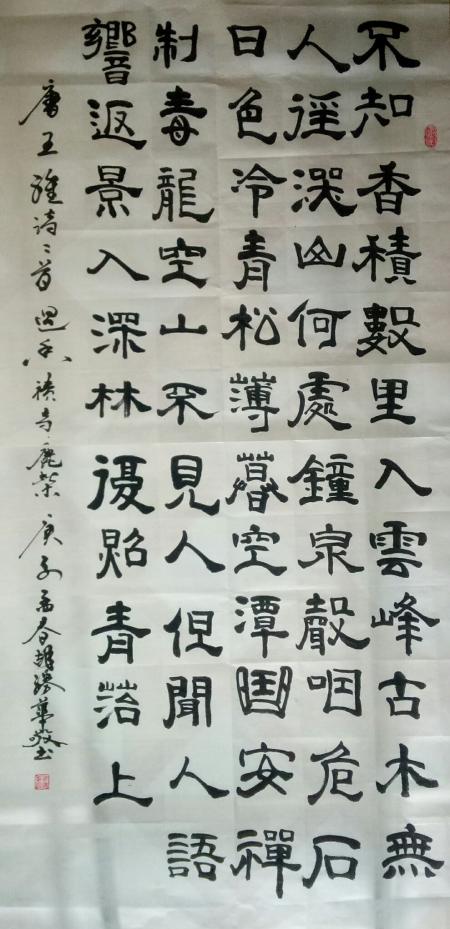 不知香積數里入雲峰古木無
人徑深山何處鐘泉聲咽危石
日色冷青松薄暮空潭曲安禪
制毒龍空山不見人但聞人語
響返景入深林復照青苔上
唐王維詩二首過香積寺鹿柴庚子孟春華敬書